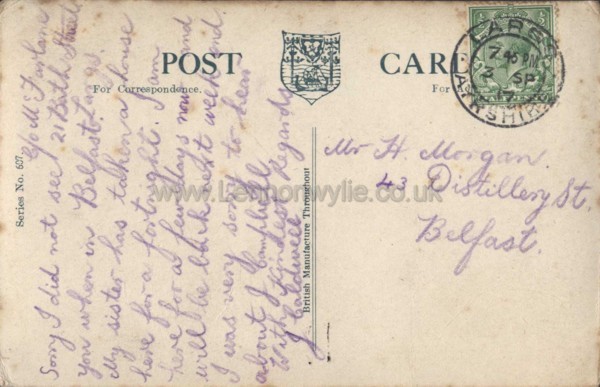 POST CARD
For Correspondence.
C/o McFarlane
21 Bath Street
Largs.
Sorry I did not see
you when in Belfast.
My sister has taken a house
here for a fortnight. I am
here for a few days now and
will be back next week end.
I was very sorry to hear
about J Campbell
With Kindest Regards
J Caldwell
Series No. 627.
British Manufacture Throughout
LARGS
7.45 PM
3 SP
17
AYRSHIRE
Mr H. Morgan.
43 Distillery St.
Belfast.
www.Lennonwylie.co.uk